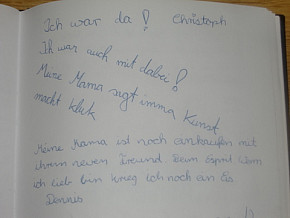 Ich war da! Christoph
Ich war auch mit dabei!
Meine Mama sagt imma Kunst
macht klak
Meine Mama ist noch einkaufen mit
ihrem neuen Freund beim Esprit wenn
ich lieb bin krieg ich noch an Eis
Dennis